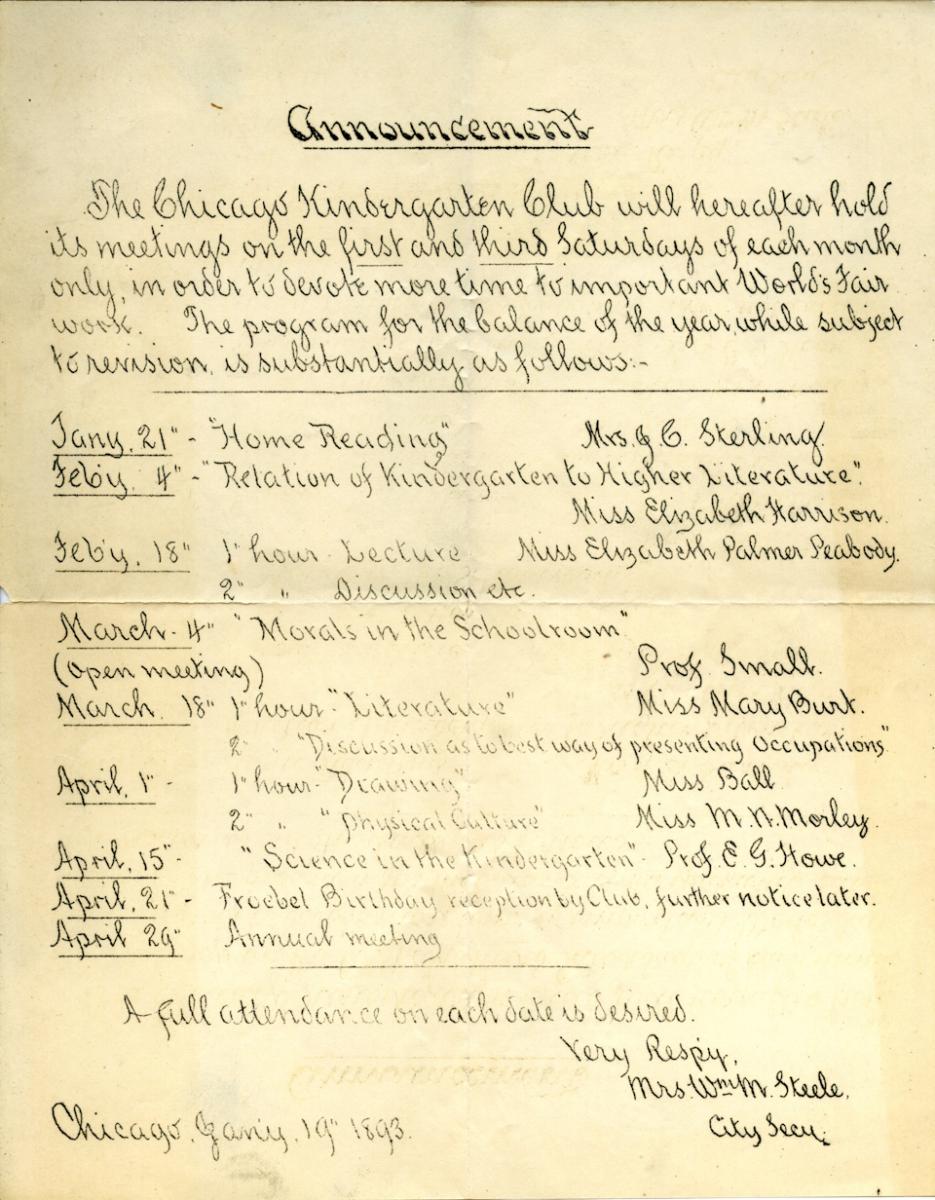 Announcement
The Chicago Kindergarten Club will hereafter hold
its meetings on the first and third Saturdays of each month
only, in order to devote more time to important World's Fair
work. The program for the balance of the year, while subject
to revision, is substantially as follows:-
Jany. 21" - "Home Reading" Mrs. J C. Sterling.
Feb'y. 4" - "Relation of Kindergarten to Higher Literature".
Miss Elizabeth Harrison.
Feb'y. 18" 1" hour - Lecture Miss Elizabeth Palmer Peabody.
2" " Discussion etc.
March - 4" "Morals in the Schoolroom"
(open meeting) Prof. Small.
March. 18" 1" hour - "Literature" Miss Mary Burt.
2" " "Discussion as to best way of presenting Occupations"
April, 1" - 1" hour - "Drawing" Miss Ball
2" " "Physical Culture" Miss M. N. Morley.
April, 15" - "Science in the Kindergarten" - Prof. E. G. Howe.
April, 21" - Froebel Birthday reception by Club, further notice later.
April 29" Annual meeting
A full attendance on each date is desired.
Very Respy,
Mrs. Wm. M. Steele,
City Secy.
Chicago, Jany, 19" 1893.